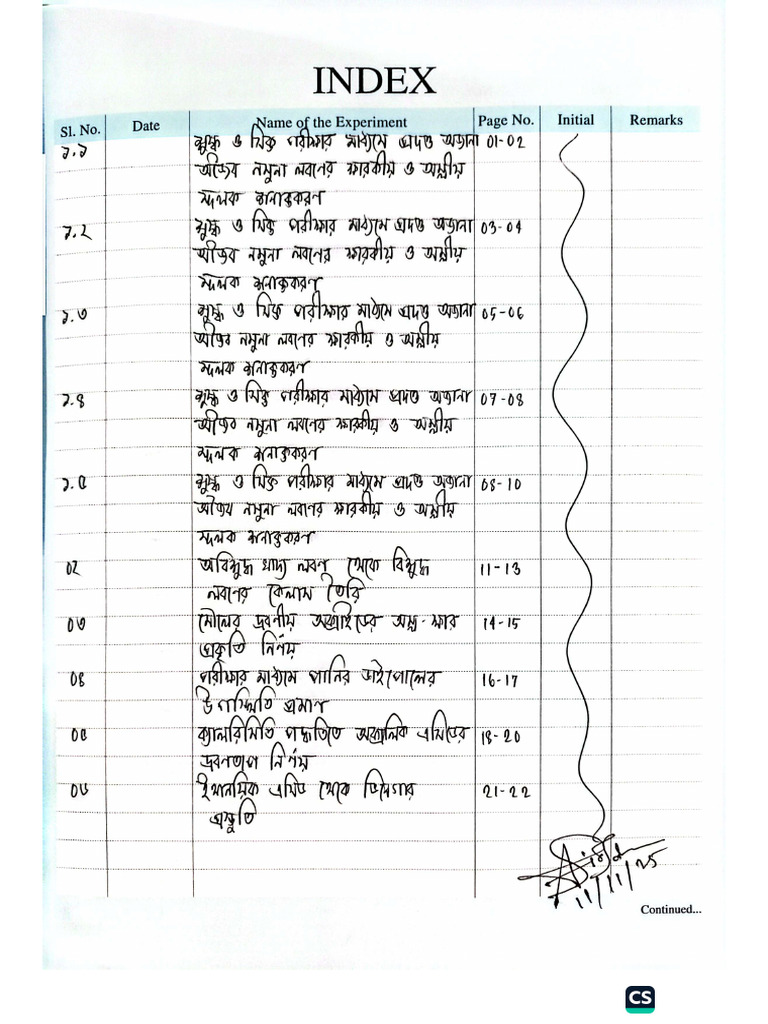 INDEX
Sl. No. Date Name of the Experiment Page No. Initial Remarks
১.১ শুষ্ক ও সিক্ত পরীক্ষার মাধ্যমে প্রদত্ত অজানা 01-02
অজৈব নমুনা লবণের ক্ষারকীয় ও অম্লীয়
মূলক শনাক্তকরণ
১.২ শুষ্ক ও সিক্ত পরীক্ষার মাধ্যমে প্রদত্ত অজানা 03-04
অজৈব নমুনা লবণের ক্ষারকীয় ও অম্লীয়
মূলক শনাক্তকরণ
১.৩ শুষ্ক ও সিক্ত পরীক্ষার মাধ্যমে প্রদত্ত অজানা 05-06
অজৈব নমুনা লবণের ক্ষারকীয় ও অম্লীয়
মূলক শনাক্তকরণ
১.৪ শুষ্ক ও সিক্ত পরীক্ষার মাধ্যমে প্রদত্ত অজানা 07-08
অজৈব নমুনা লবণের ক্ষারকীয় ও অম্লীয়
মূলক শনাক্তকরণ
১.৫ শুষ্ক ও সিক্ত পরীক্ষার মাধ্যমে প্রদত্ত অজানা 08-10
অজৈব নমুনা লবণের ক্ষারকীয় ও অম্লীয়
মূলক শনাক্তকরণ
০২ অবিশুদ্ধ খাদ্য লবণ থেকে বিশুদ্ধ 11-13
লবণের কেলাস তৈরি
০৩ মৌলের দ্রবণীয় অক্সাইডের অম্ল-ক্ষার 14-15
প্রকৃতি নির্ণয়
০৪ পরীক্ষার মাধ্যমে পানির ডাইপোলের 16-17
উপস্থিতি প্রমাণ
০৫ ক্যালরিমিতি পদ্ধতিতে অক্সালিক এসিডের 18-20
দ্রবণতাপ নির্ণয়
০৬ ইথানয়িক এসিড থেকে ভিনেগার 21-22
প্রস্তুতি
11/11/25
Continued...
CS